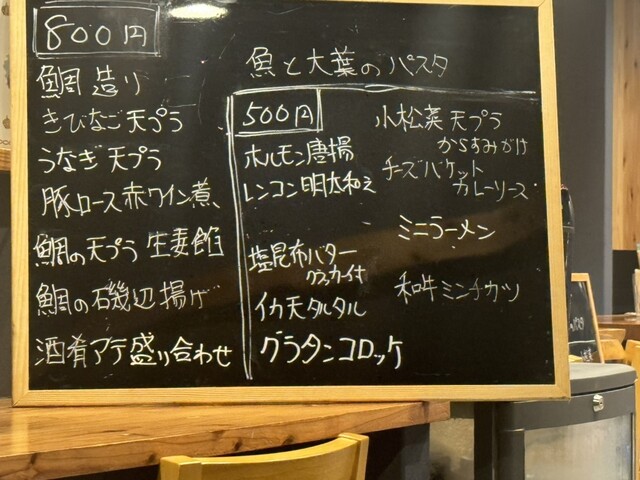 800円
鯛 造り
きびなご 天プラ
うなぎ 天プラ
豚ロース 赤ワイン煮
鯛の天プラ 生姜餡
鯛の磯辺揚げ
酒肴アテ盛り合わせ
魚と大葉のパスタ
500円
ホルモン唐揚
レンコン明太和え
塩昆布バター
イカ天タルタル
グラタンコロッケ
小松菜 天プラ
からすみかけ
チーズバケット
カレーソース
ミニラーメン
和牛ミンチカツ